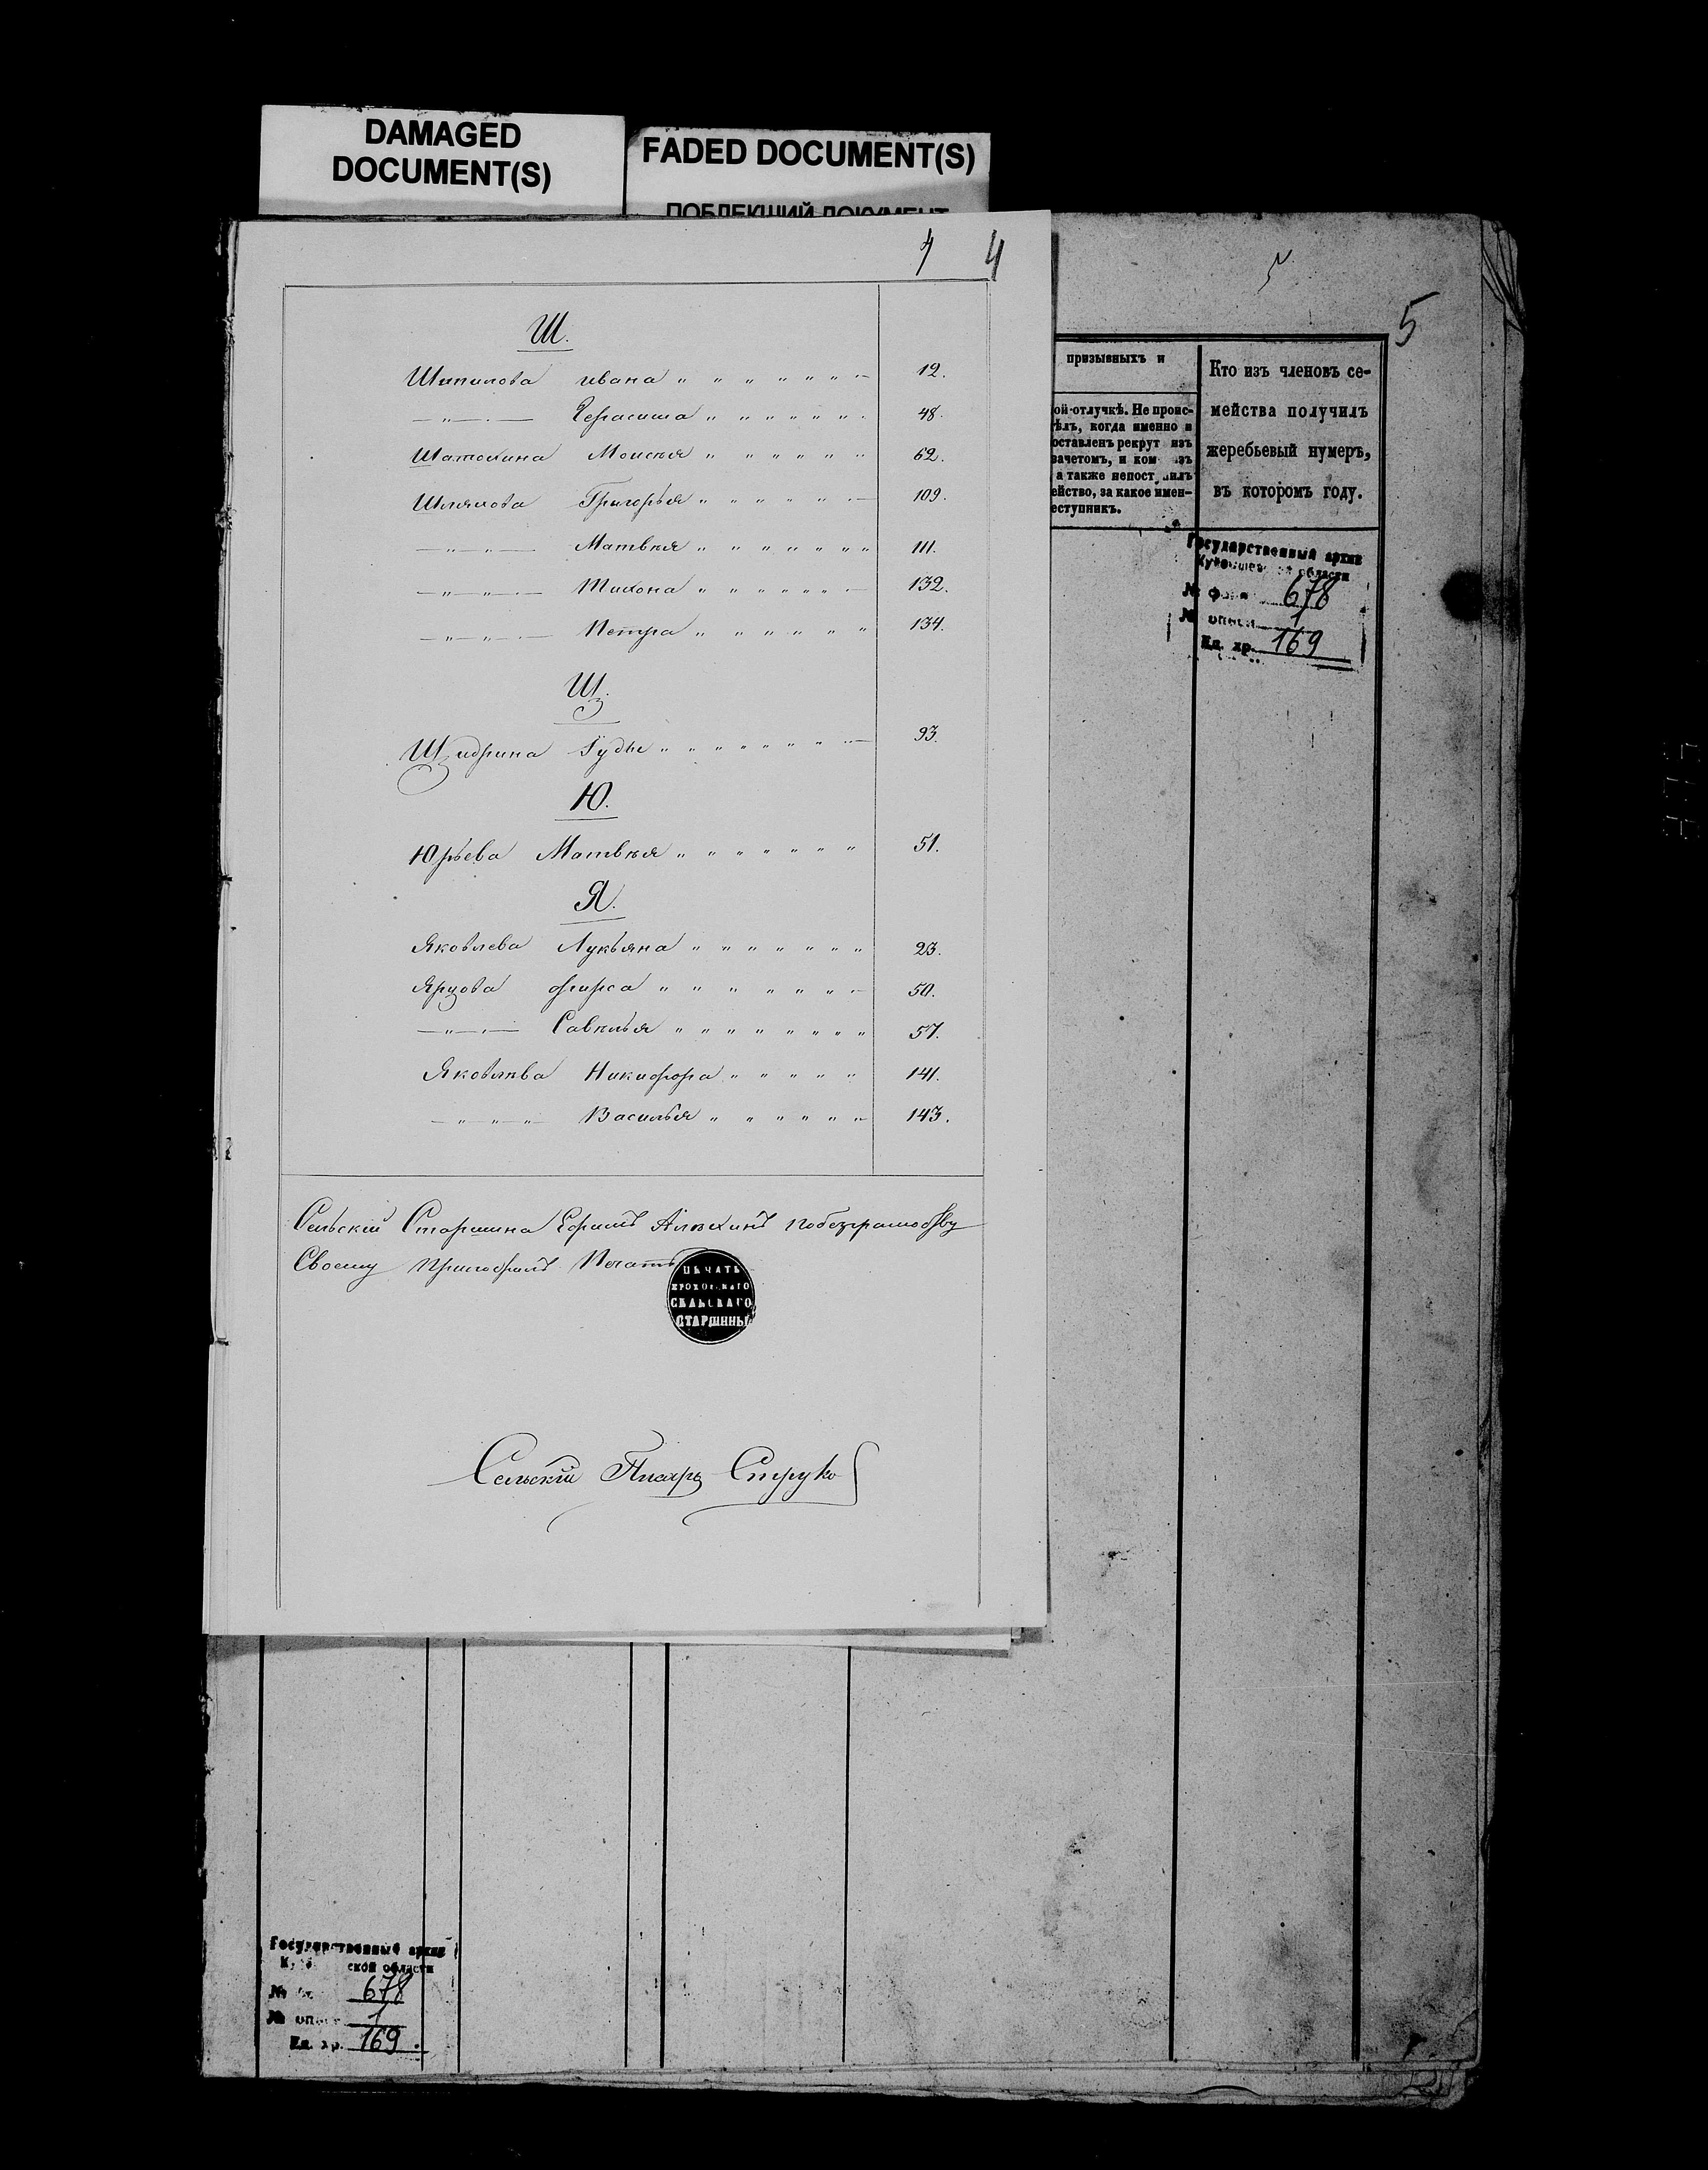 DAMAGED
DOCUMENT(S)
FADED DOCUMENT(S)
ПОБЛЕКШИЙ ДОКУМЕНТ
4 4
Ш.
Шипилова ивана 12.
Герасима 48.
Шатохина Моисея 62.
Шляхова Григорья 109.
Матвея 111.
Тихона 132.
Петра 134.
Щ.
Щидрина Гудѣе 93.
Ю.
Юрьева Матвея 51.
Я.
Яковлева Лукьяна 23.
Ярцова фирса 50.
Савелья 57.
Яковлева Никифора 141.
Василья 143.
Сельский Старшина Ефимъ Алехинъ
Своему Приложилъ Печать
ПЕЧАТЬ
СЕЛЬСКАГО
СТАРШИНЫ
Сельский Писарь Струко
5
5
призывныхъ и
ой-отлучкѣ. Не проис-
ѣлъ, когда именно и
оставленъ рекрут изъ
зачетомъ, и ком изъ
а также непост вилъ
ейство, за какое имен-
еступникъ.
Кто изъ членовъ се-
мейства получилъ
жеребьевый нумеръ,
въ которомъ году.
Государственный архив
области
№ фон 678
№ описи 1
Ед. хр. 169
Государственный архив
ской области
№ 678
№ опис 1
Ед. хр. 169